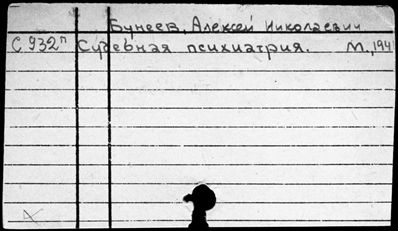 Бунеев, Алексей Николаевич
С 932п Судебная психиатрия. М., 194